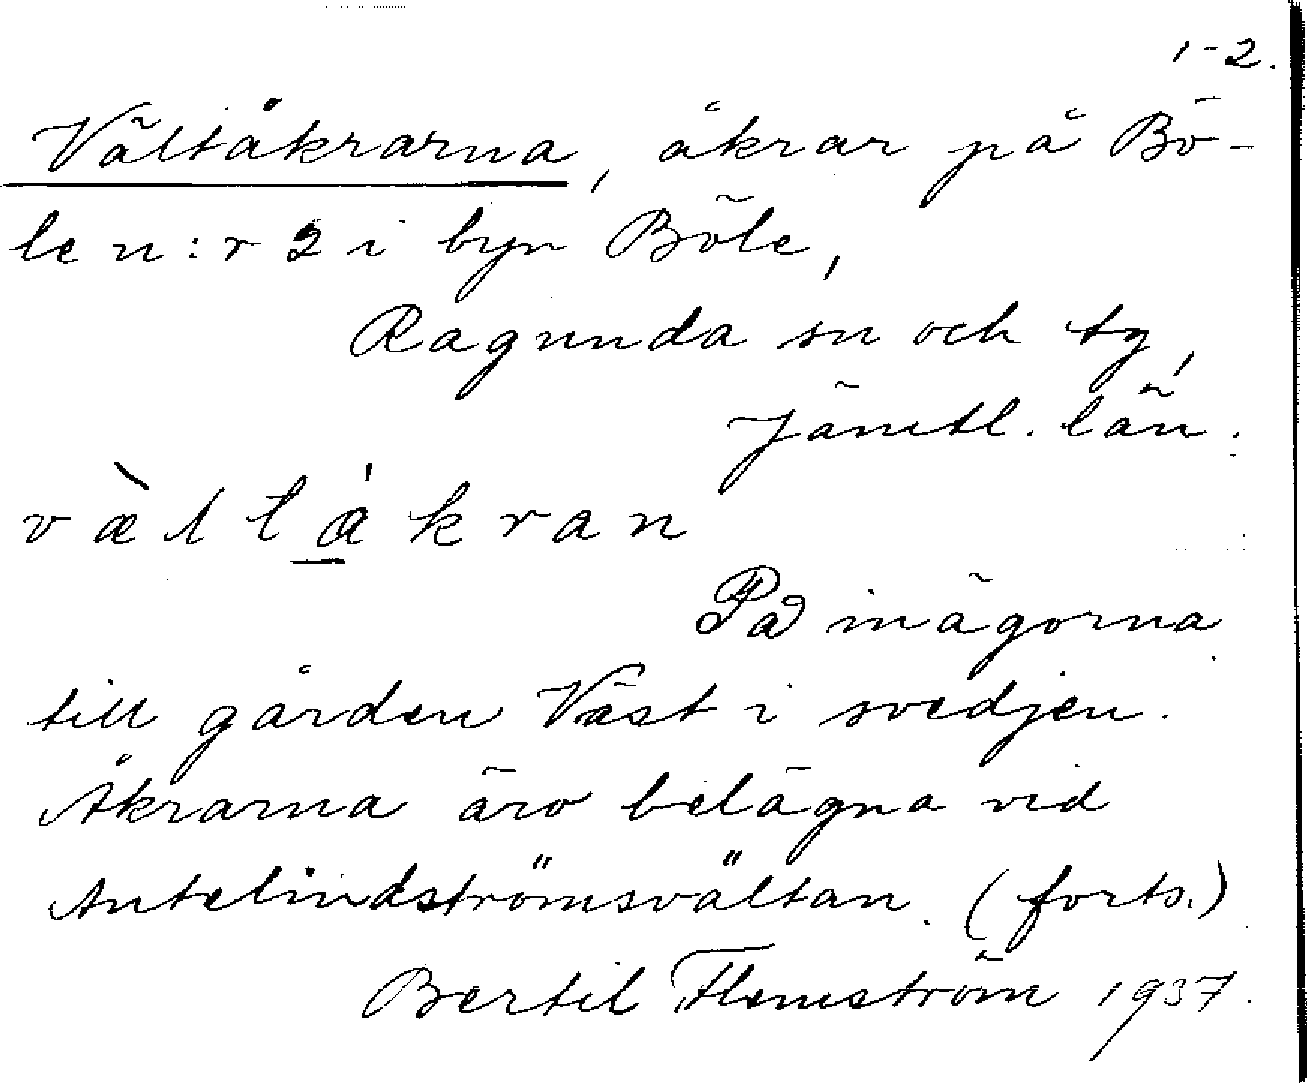 1-2.
Vältåkrarna, åkrar på Bö-
le n:r 2 i byn Böle,
Ragunda sn och tg,
Jämtl. län.
væ̀ltá̱kran
På inägorna
till gården Väst i svedjen.
Åkrarna äro belägna vid
Antelindströmsvältan. (forts.)
Bertil Flemström 1937.